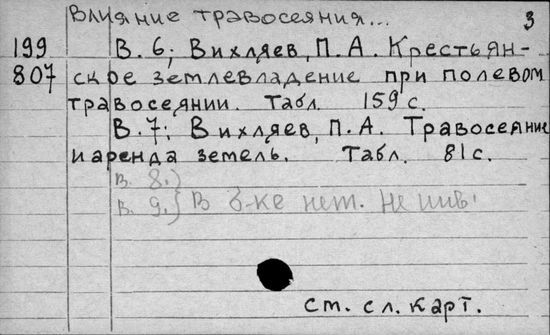 Влияние травосеяния... 3
199 В. 6; Вихляев, П. А. Крестьян-
807 ское землевладение при полевом
травосеянии. Табл. 159 с.
В. 7; Вихляев, П. А. Травосеяние
и аренда земель. Табл. 81 с.
В. 8.)
В. 9.) В б-ке нет.
ст. сл. карт.